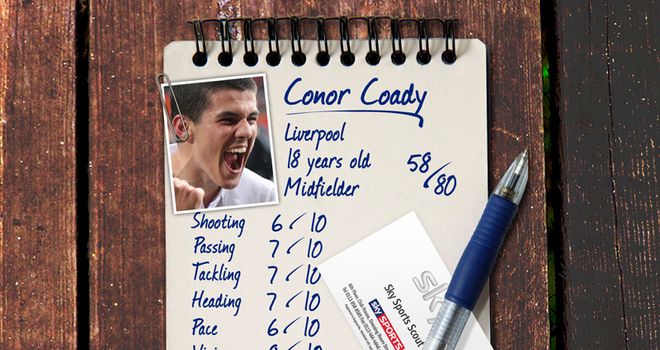 Conor Coady
Liverpool
18 years old
Midfielder
58/80
Shooting 6/10
Passing 7/10
Tackling 7/10
Heading 7/10
Pace 6/10
Sky Sports Scout
sky SPORTS
sky